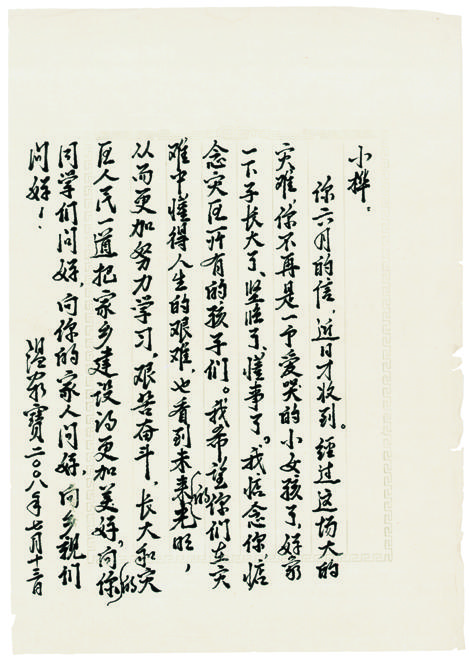 小桦：
你六月的信，近日才收到。经过这场大的
灾难，你不再是一个爱哭的小女孩了，好象
一下子长大了、坚强了、懂事了。我惦念你，惦
念灾区所有的孩子们。我希望你们在灾
难中懂得人生的艰难，也看到未来的光明，
从而更加努力学习，艰苦奋斗，长大和灾
区人民一道把家乡建设得更加美好。向你的
同学们问好，向你的家人问好，向乡亲们
问好！
温家宝 二〇〇八年七月十三日